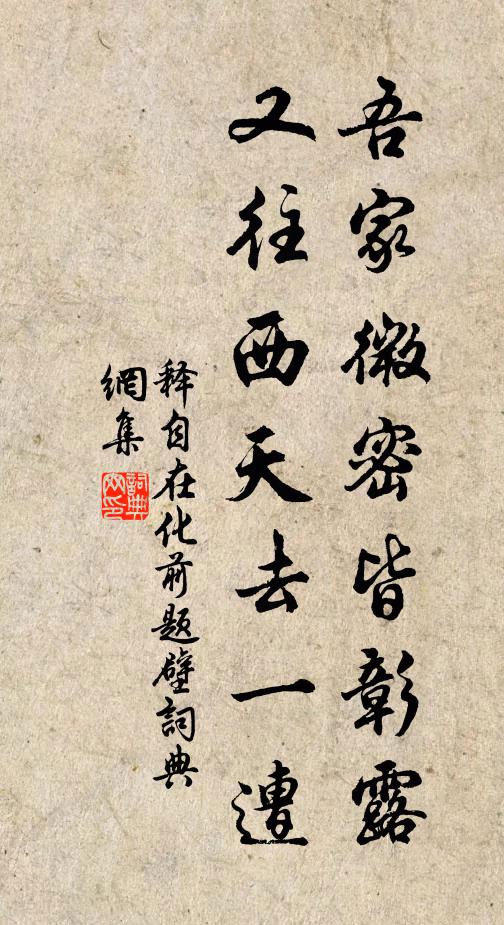 吾家微密皆彰露
又往西天去一遭
释自在化前题壁詞典
網集
詞典